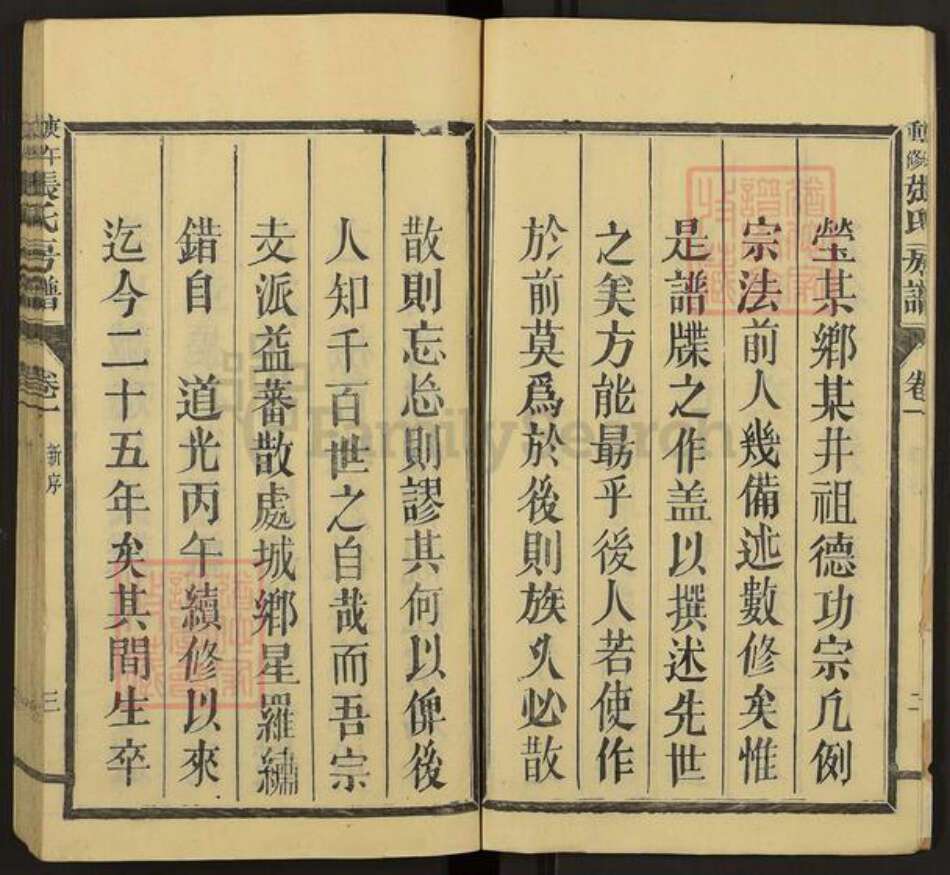 重修張氏房譜
卷一
二
瑩某鄉某井祖德功宗凡例
宗法前人幾備述數修矣惟
是譜牒之作盖以撰述先世
之矣方能最乎後人若使作
於前莫爲於後則族久必散
散則忘忘則謬其何以俾後
人知千百世之自哉而吾宗
支派益蕃散處城鄉星羅繡
錯自 道光丙午續修以來
迄今二十五年矣其間生卒
庚午張氏房譜
卷一
新序
三
FamilySearch